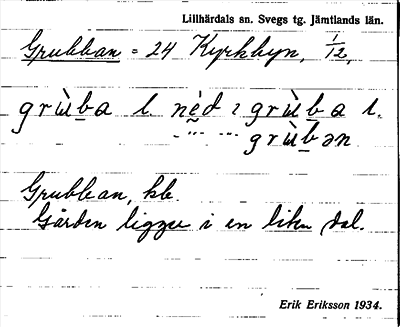 Lillhärdals sn. Svegs tg. Jämtlands län.
Grubban = 24 Kyrkbyn, 1/12,
grùba l. nèd i grùba l.
-"- -"- grùbən
Grubban, kb.
Gården ligger i en liten dal.
Erik Eriksson 1934.